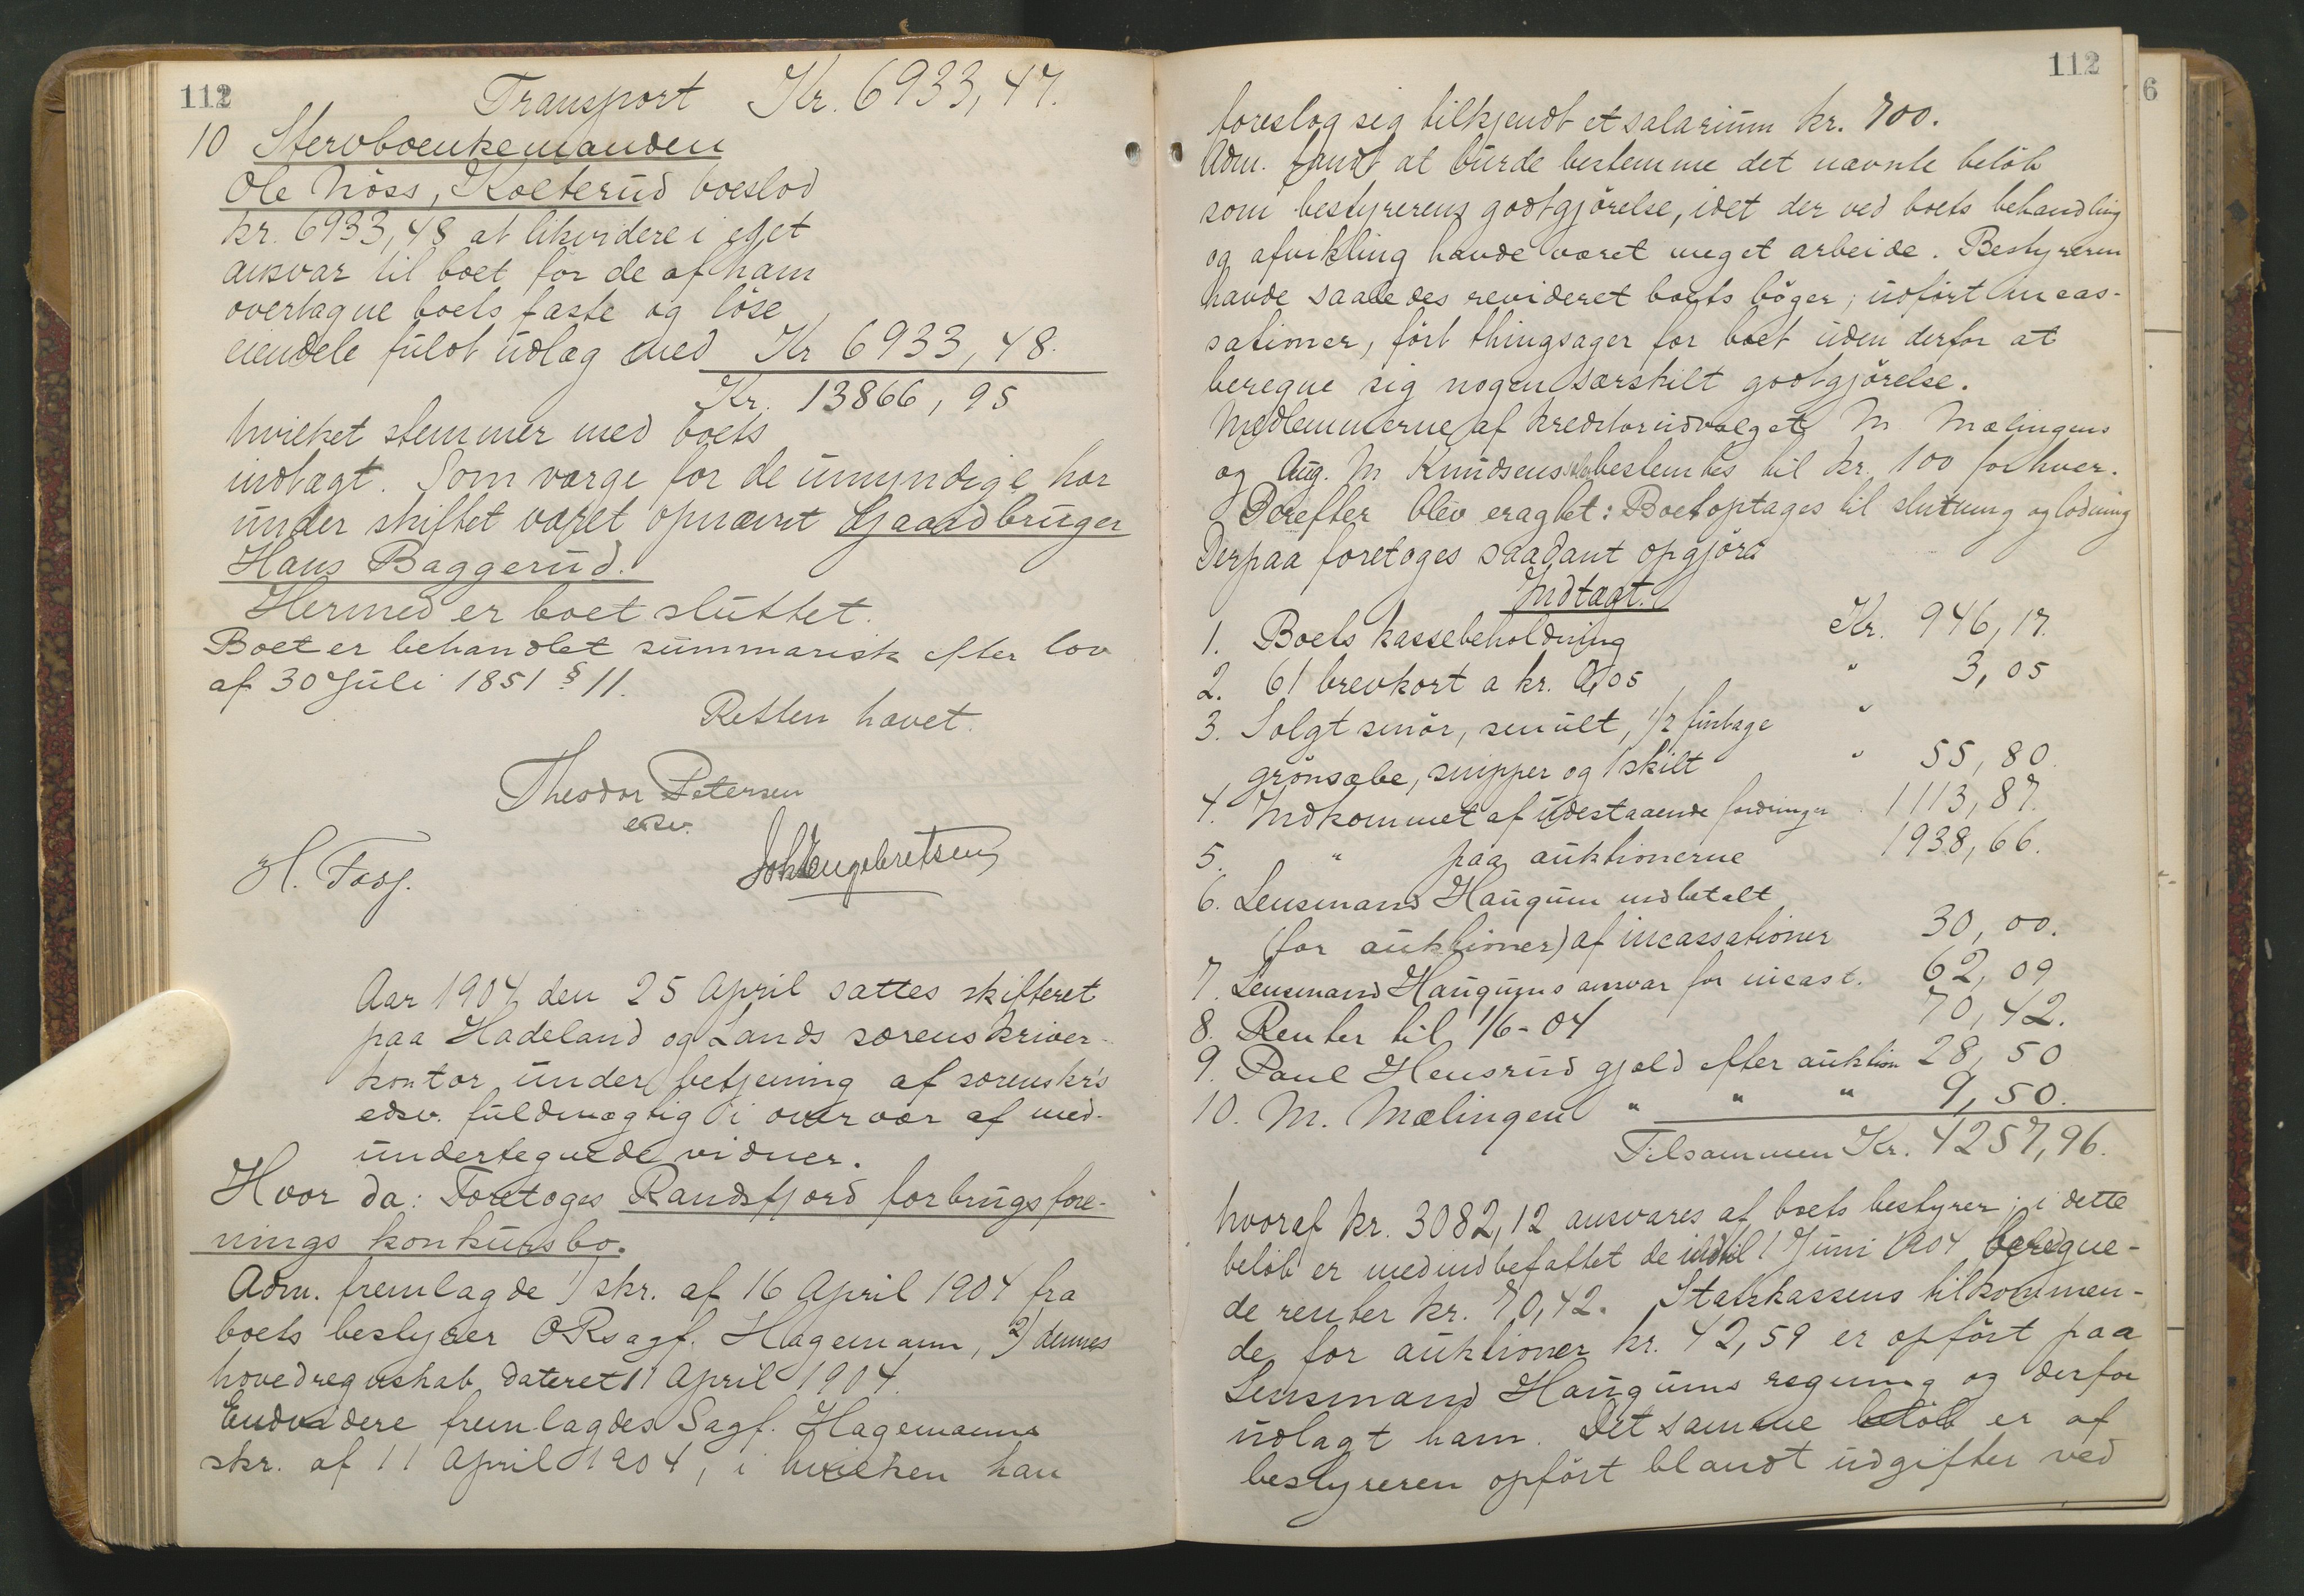 112
Transport Kr. 6933,47.
10 Stervboenkemanden
Ole Nöss, Kolterud boeslod
kr. 6933,48 at likvidere i eget
ansvar til boet for de af ham
overtagne boets faste og löse
eiendele fuldt udlæg med Kr 6933,48.
Kr. 13866,95
hvilket stemmer med boets
indtægt. Som værge for de umyndige har
under skiftet været opnævnt Gaardbruger
Hans Baggerud.
Hermed er boet sluttet.
Boet er behandlet summarisk efter lov
af 30 Juli 1851 § 11.
Retten hævet.
Theodor Petersen
edsv.
H. Foss.
Joh Engebretsen
Aar 1904 den 25 April sattes skifteret
paa Hadeland og Lands sorenskriver-
kontor under betjening af sorenskr's
edsv. fuldmægtig i overvær af med-
undertegnede vidner.
Hvor da: Foretoges Randsfjord forbrugsfore-
nings konkursbo.
Adm. fremlagde 1) skr. af 16 April 1904 fra
boets bestyrer ORsagf. Hagemann, 2) dennes
hovedregnskab dateret 11 April 1904.
Endvidere fremlagdes Sagf. Hagemanns
skr. af 11 April 1904, i hvilken han
112
6
foreslog sig tilkjendt et salarium kr. 700.
Adm. fandt at burde bestemme det nævnte belöb
som bestyrerens godtgjörelse, idet der ved boets behandling
og afvikling havde været meget arbeide. Bestyreren
havde saaledes revideret boets böger, udfört incas-
sationer, fört thingsager for boet uden derfor at
beregne sig nogen særskilt godtgjörelse.
Medlemmerne af kreditorudvalget M Mælingens
og Aug. M Knudsens bestemtes til kr. 100 for hver.
Derefter blev eragtet: Boet optages til slutning og lodning
Derpaa foretoges saadant opgjörs
Indtægt.
1. Boets kassebeholdning Kr. 946,17.
2. 61 brevkort a kr. 0,05 " 3,05
3. Solgt smör, smult, 1/2 fustage "
grönsæbe, snipper og 1 skilt " 55,80.
4. Indkommet af udestaaende fordringer 1113,87.
5. " paa auktionerne 1938,66.
6. Lensmand Haugum indbetalt
(for auktioner) af incassationer 30,00.
7. Lensmand Haugums ansvar for incast. 62,09
8. Renter til 1/6-04 70,42.
9. Paul Hensrud gjæld efter auktion 28,50
10. M. Mælingen " " " 9,50.
Tilsammen Kr. 4257,96.
hvoraf kr. 3082,12 ansvares af boets bestyrer; i dette
belöb er medindbefattet de indtil 1 Juni 1904 beregne-
de renter kr. 70,42. Statskassens tilkommen-
de for auktioner kr. 42,59 er opfört paa
Lensmand Haugums regning og derfor
udlagt ham. Det samme belöb er af
bestyreren opfört blandt udgifter ved